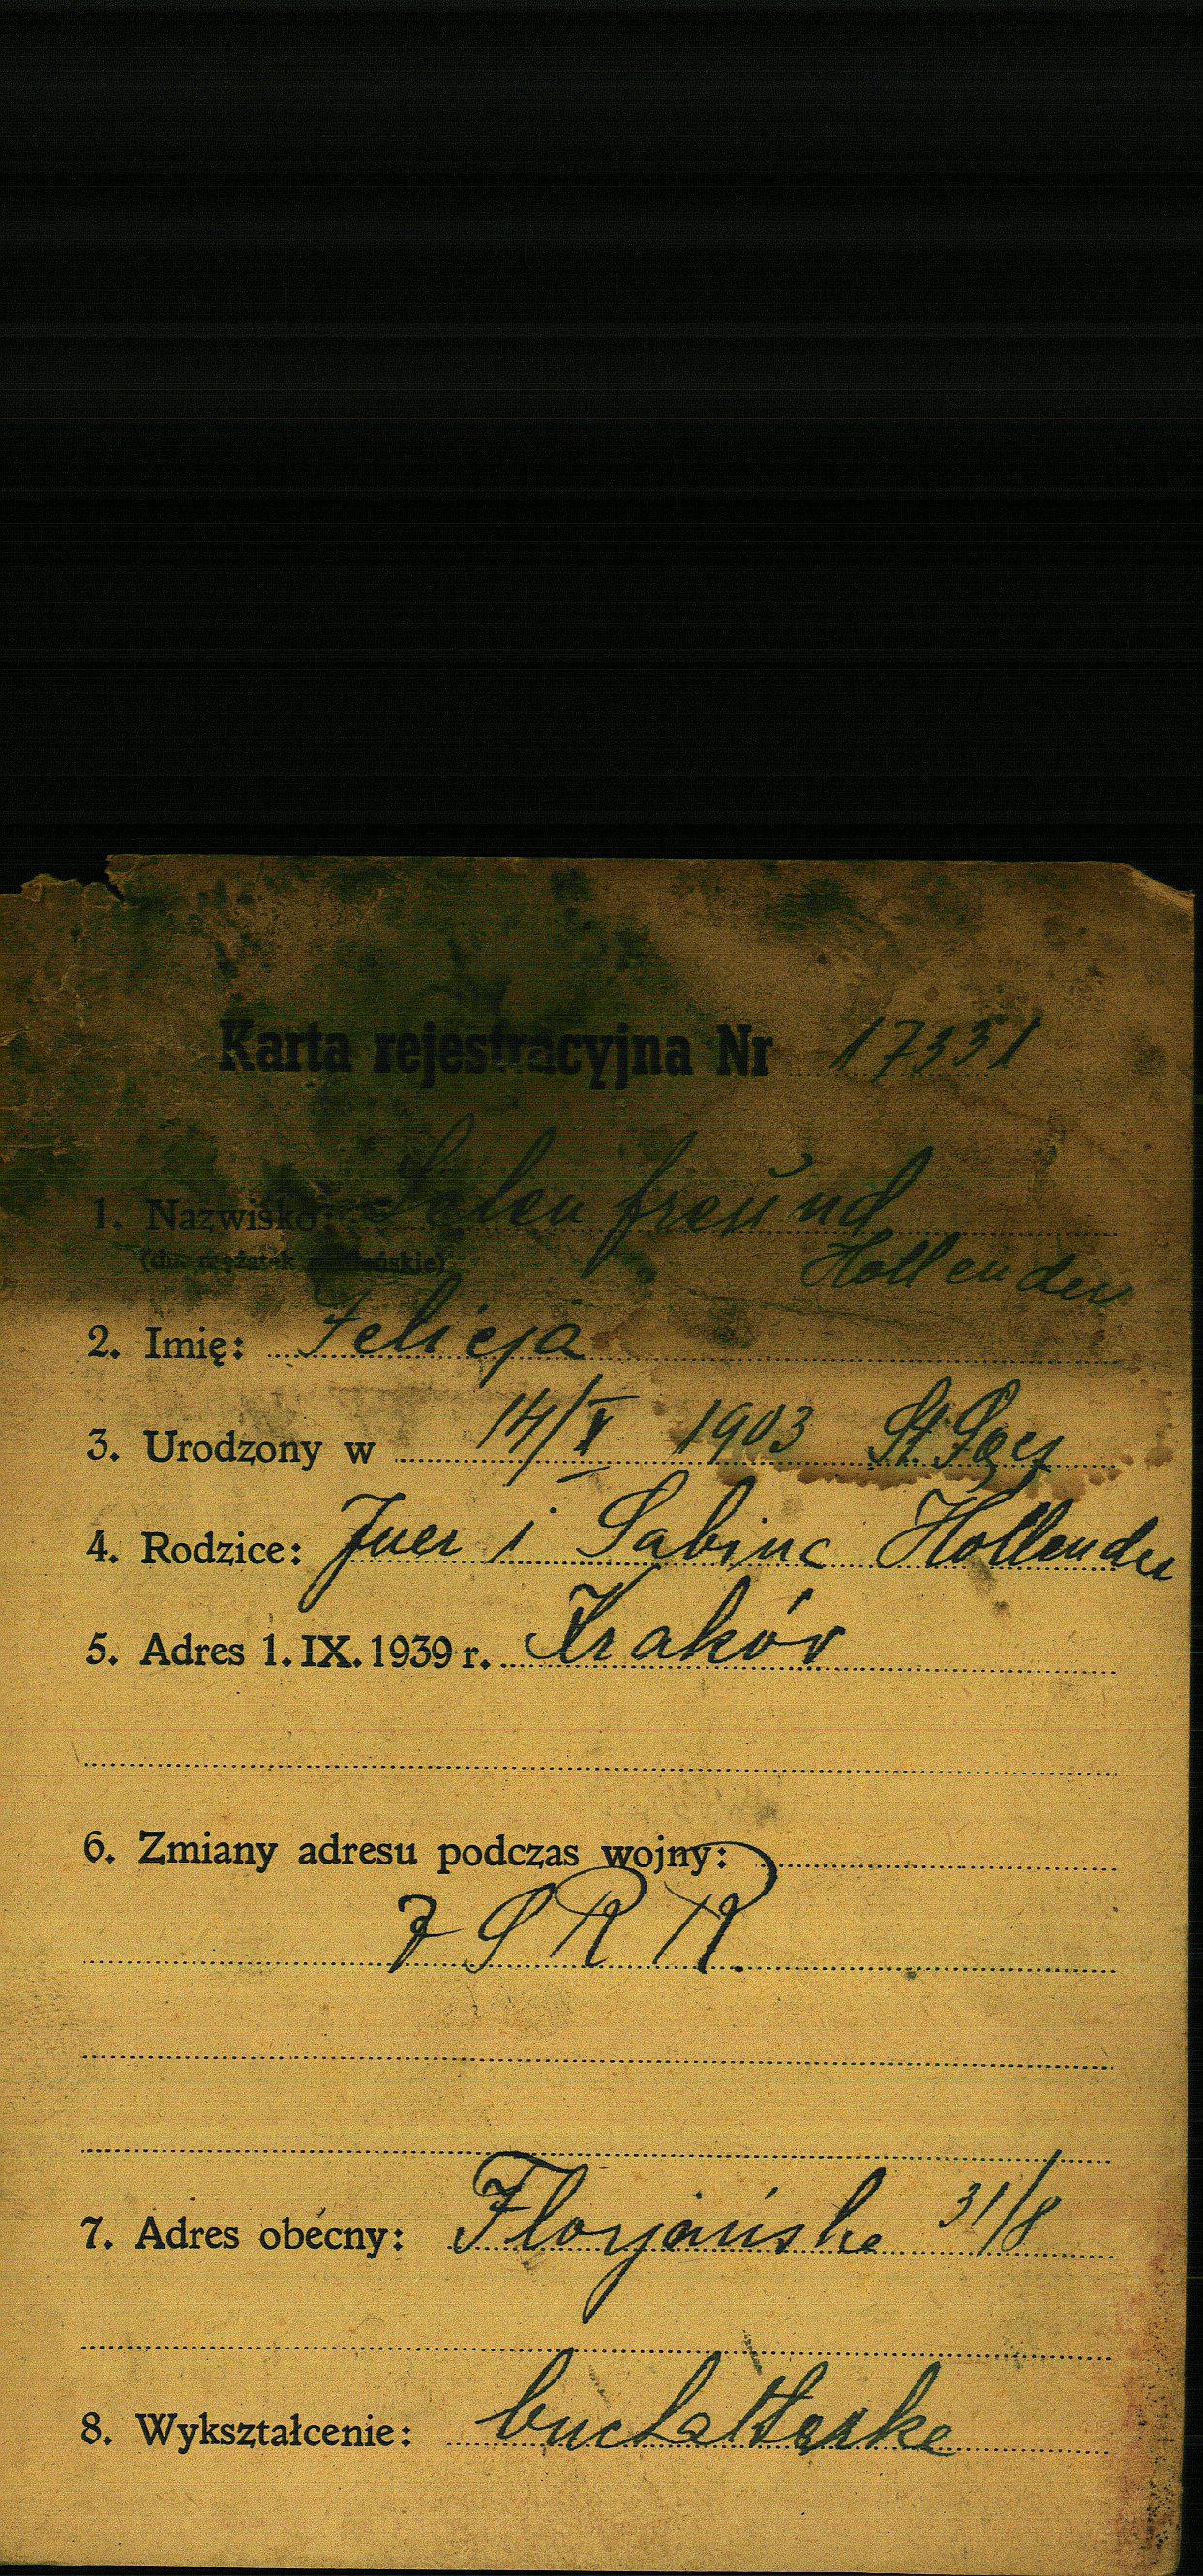 Karta rejestracyjna Nr 17331
1. Nazwisko: Salenfreund
(dla mężatek panieńskie) Hollender
2. Imię: Felicja
3. Urodzony w 14/V 1903 St. Sącz
4. Rodzice: i Sabina Hollender
5. Adres 1. IX. 1939 r. Kraków
6. Zmiany adresu podczas wojny:
ZSRR.
7. Adres obecny: Florjańska 31/8
8. Wykształcenie: buchalterka